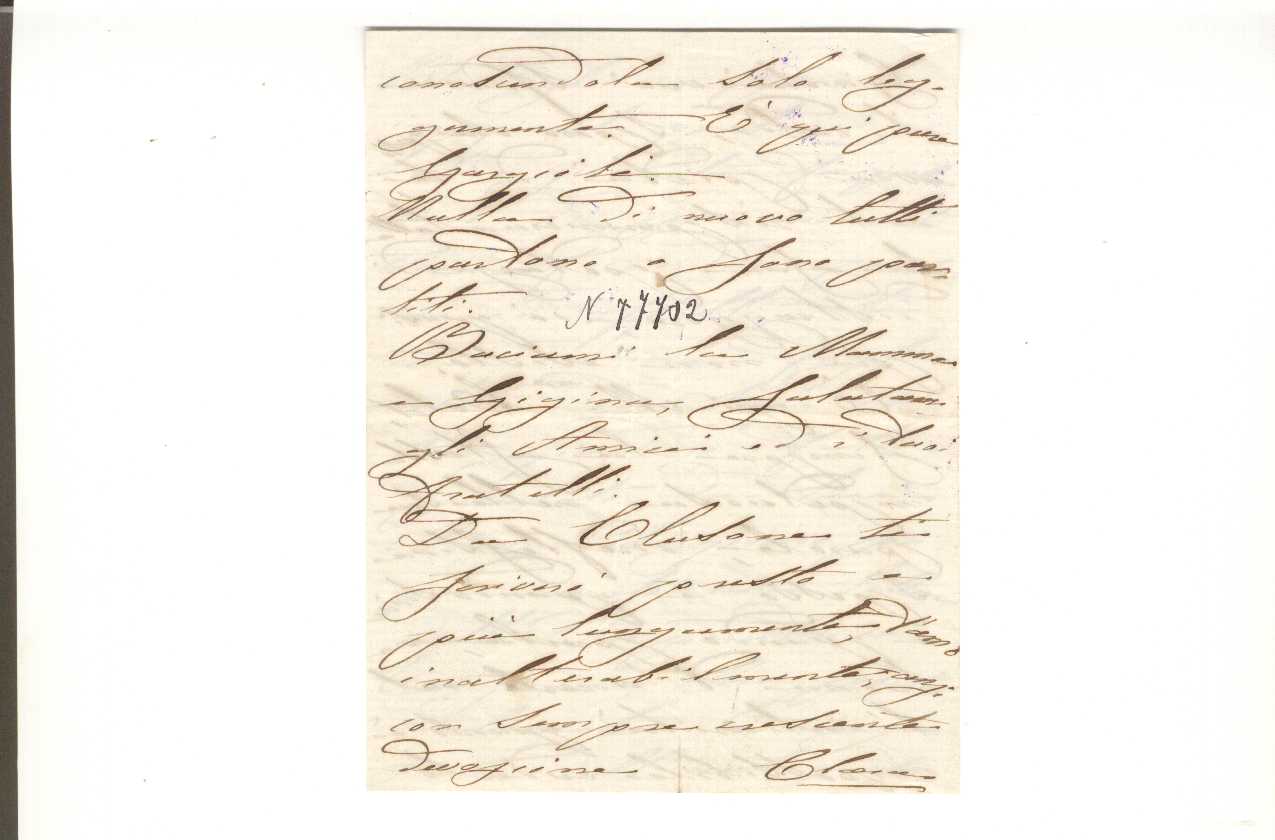 conoscendola solo leg-
germente. È qui pure
Gargiobi.
Nulla di nuovo tutti
partono o sono par-
titi.
N 77702
Baciami la Mamma
e Gigina, Salutami
gli Amici ed i tuoi
fratelli.
Da Clusone ti
scriverò presto e
più lungamente, t'amo
inalterabilmente, anzi
con sempre crescente
devozione Clara